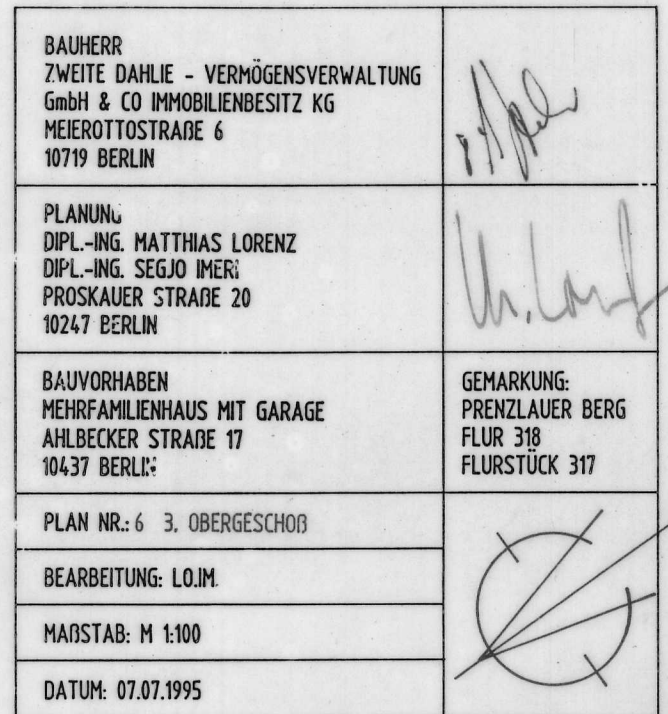 BAUHERR
ZWEITE DAHLIE - VERMÖGENSVERWALTUNG
GmbH & CO IMMOBILIENBESITZ KG
MEIEROTTOSTRAßE 6
10719 BERLIN
PLANUNG
DIPL.-ING. MATTHIAS LORENZ
DIPL.-ING. SEGJO IMERI
PROSKAUER STRAßE 20
10247 BERLIN
BAUVORHABEN
MEHRFAMILIENHAUS MIT GARAGE
AHLBECKER STRAßE 17
10437 BERLIN
GEMARKUNG:
PRENZLAUER BERG
FLUR 318
FLURSTÜCK 317
PLAN NR.: 6 3. OBERGESCHOß
BEARBEITUNG: LO.IM.
MAßSTAB: M 1:100
DATUM: 07.07.1995